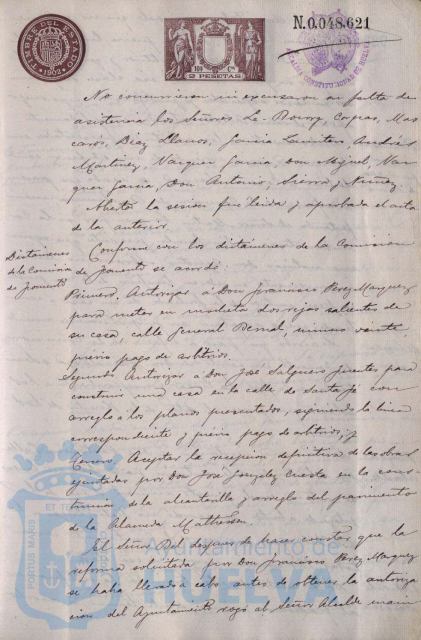 TIMBRE DEL ESTADO
1902
2 PESETAS
N.0.048.621
No concurrieron ni excusaron su falta de
asistencia los Señores Le-Bourg, Corpas, Mas
caros, Diaz Llanos, Garcia Andrés
Martinez, Vazquez Garcia, Don Miguel, Vaz
quez Garcia, Don Antonio, Sierra y Nuñez.
Abierta la sesion fué leida y aprobada el acta
de la anterior.
Dictámenes
de la Comision
de fomento
Conforme con los dictámenes de la Comision
de fomento se acordó:
Primero. Autorizar á Don Francisco Perez Marquez
para meter en dos rejas salientes de
su casa, calle General Bernal, número veinte,
previo pago de arbitrios.
Segundo Autorizar á Don José Salguero Fuentes para
construir una casa en la calle de Santa Fé con
arreglo á los planos presentados, siguiendo la linea
correspondiente y previo pago de arbitrios, y
Tercero Aceptar la recepcion definitiva de las obras
ejecutadas por Don José Gonzalez Cuesta en la cons-
truccion de la alcantarilla y arreglo del pavimento
de la Alameda Matheson.
El Señor Bel despues de hacer constar que la
reforma solicitada por Don Francisco Perez Marquez
se habia llevado á cabo antes de obtener la autoriza
cion del Ayuntamiento rogó al Señor Alcalde
PORTUS MARIS
ET TE
Ayuntamiento de
HUELVA